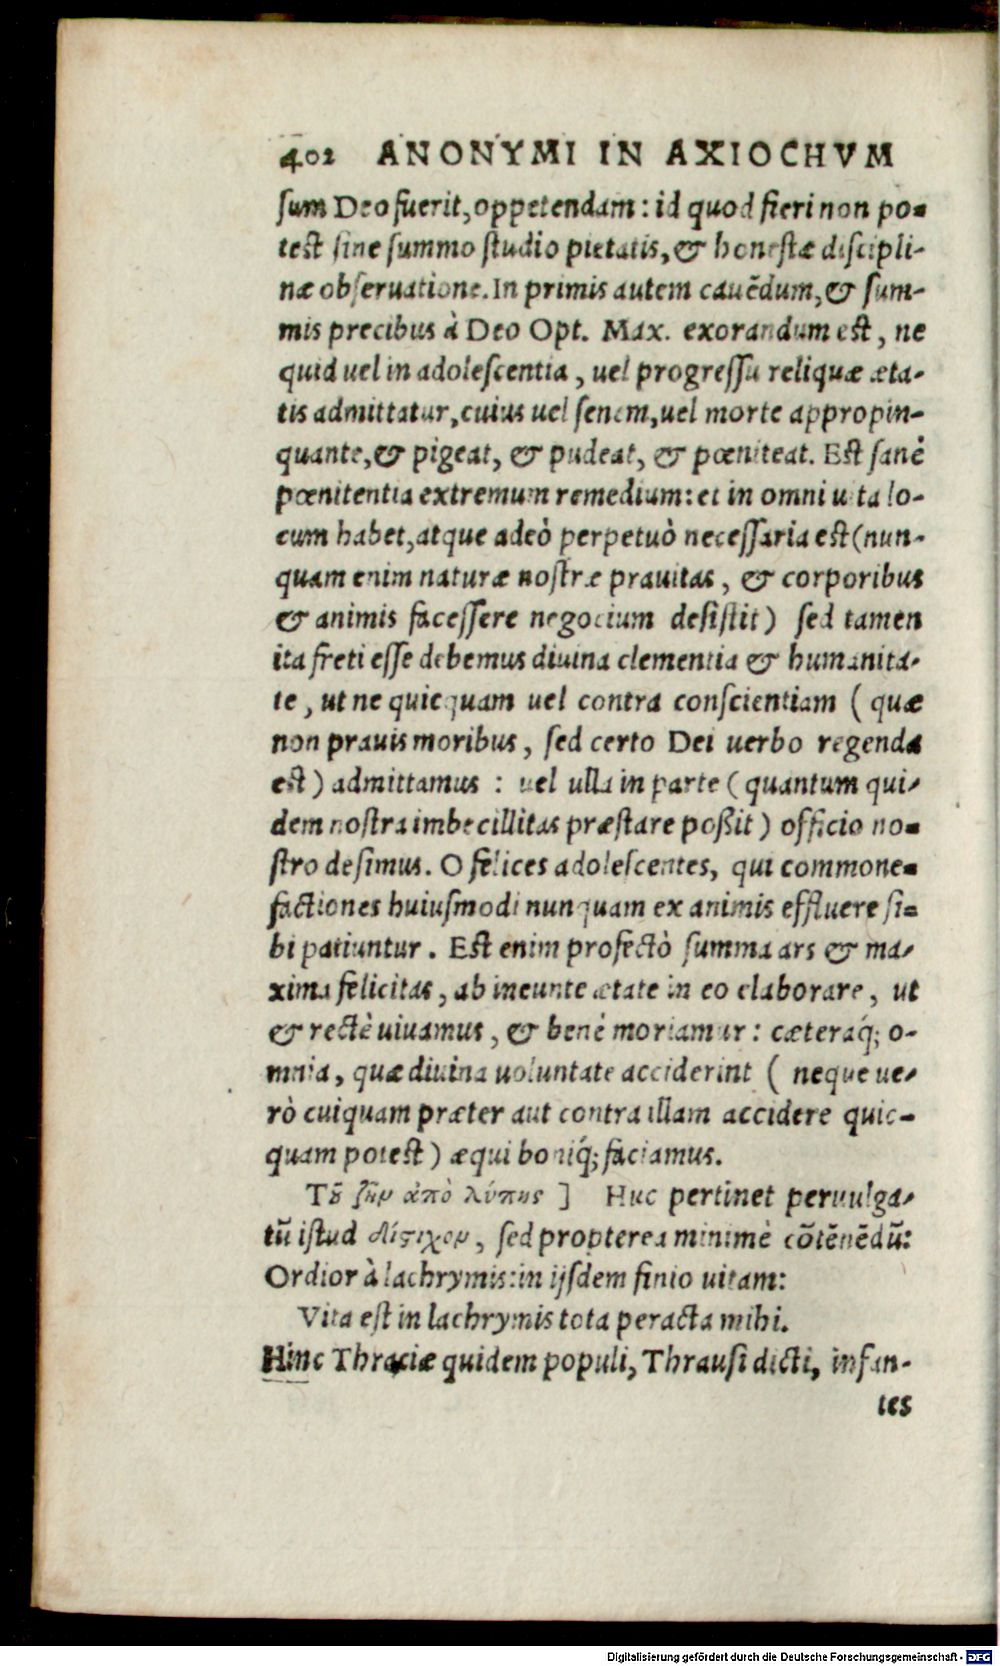 402 ANONYMI IN AXIOCHVM
sum Deo fuerit, oppetendam: id quod fieri non po-
test sine summo studio pietatis, & honestæ discipli-
næ obseruatione. In primis autem cauẽdum, & sum-
mis precibus à Deo Opt. Max. exorandum est, ne
quid uel in adolescentia, uel progressu reliquæ æta-
tis admittatur, cuius uel senem, uel morte appropin-
quante, & pigeat, & pudeat, & pœniteat. Est sanè
pœnitentia extremum remedium: et in omni uita lo-
cum habet, atque adeò perpetuò necessaria est (nun-
quam enim naturæ nostræ prauitas, & corporibus
& animis facessere negocium desistit) sed tamen
ita freti esse debemus diuina clementia & humanita-
te, ut ne quicquam uel contra conscientiam (quæ
non prauis moribus, sed certo Dei uerbo regenda
est) admittamus: uel ulla in parte (quantum qui-
dem nostra imbecillitas præstare poßit) officio no-
stro desimus. O felices adolescentes, qui commone-
factiones huiusmodi nunquam ex animis effluere si-
bi patiuntur. Est enim profectò summa ars & ma-
xima felicitas, ab ineunte ætate in eo elaborare, ut
& rectè uiuamus, & benè moriamur: cæteraq́; o-
mnia, quæ diuina uoluntate acciderint (neque ue-
rò cuiquam præter aut contra illam accidere quic-
quam potest) æqui boniq́; faciamus.
Τȣ̃ ζῆν ἀπὸ λύπης ] Huc pertinet peruulga-
tũ istud δίστιχον, sed propterea minimè cõtẽnẽdũ:
Ordior à lachrymis: in ijsdem finio uitam:
Vita est in lachrymis tota peracta mihi.
Hinc Thraciæ quidem populi, Thrausi dicti, infan-
tes
Digitalisierung gefördert durch die Deutsche Forschungsgemeinschaft - DFG